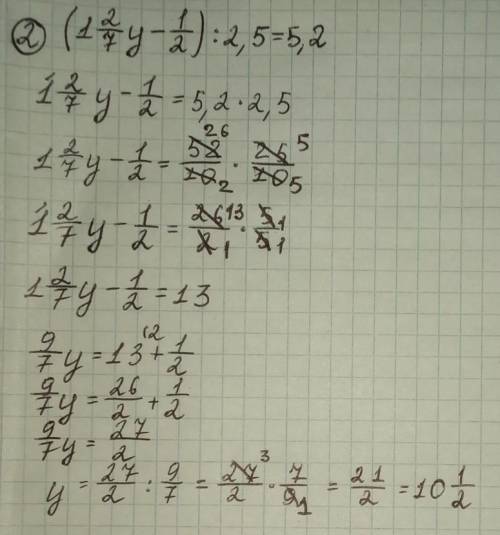 ② (1 2/7 y - 1/2) : 2,5 = 5,2
1 2/7 y - 1/2 = 5,2 · 2,5
1 2/7 y - 1/2 = 52/10 26 2 · 25/10 5 5
1 2/7 y - 1/2 = 26/2 13 1 · 5/5 1 1
1 2/7 y - 1/2 = 13
9/7 y = 13 (2 + 1/2
9/7 y = 26/2 + 1/2
9/7 y = 27/2
y = 27/2 : 9/7 = 27/2 3 · 7/9 1 = 21/2 = 10 1/2